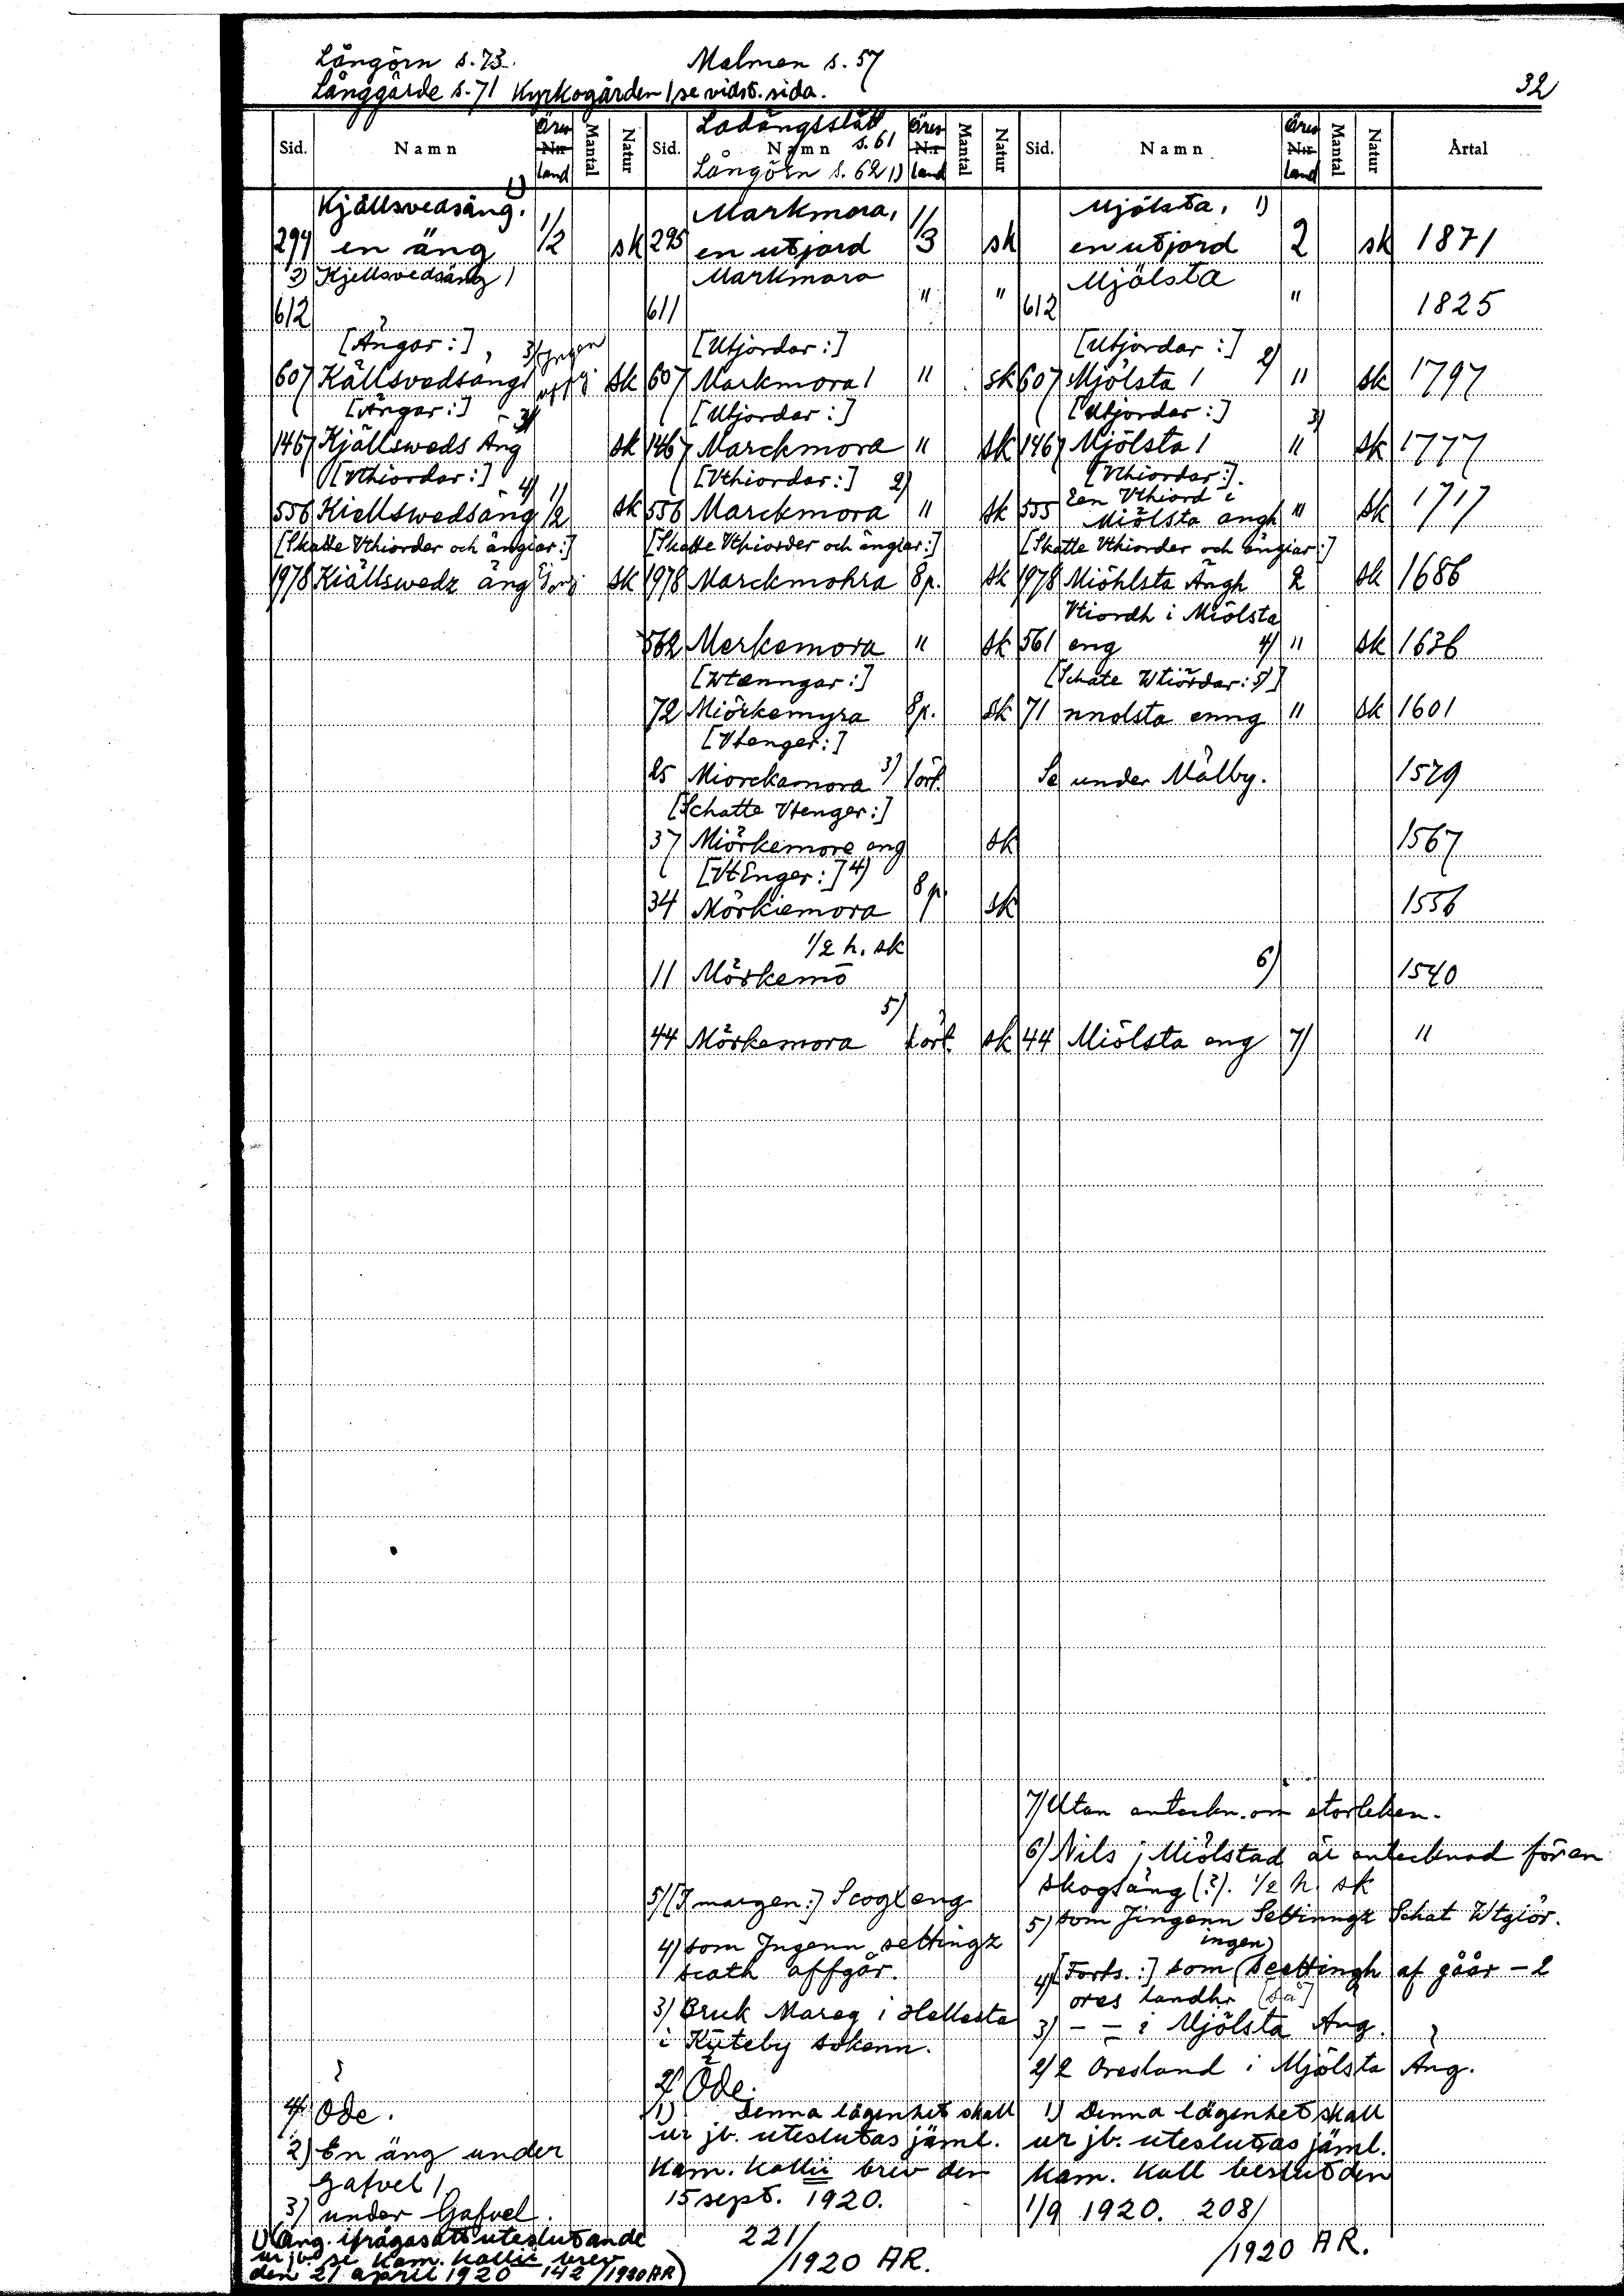 Långörn s. 73. Malmen s. 57
Långgärde s. 71 Kyrkogården /se vidst. sida. 32
Sid. Namn Öres Nr land Mantal Natur Sid. Ladängsslått s. 61 Namn Långörn s. 62 1) Öres Nr land Mantal Natur Sid. Namn Öres Nr land Mantal Natur Årtal
Kjällsvedsäng. 1) Markmora, Mjölsta, 1)
294 en äng 1/2 sk 295 en utjord 1/3 sk en utjord 2 sk 1871
2) Kjellsvedsäng / Markmora Mjölsta
612 611 " " 612 " 1825
[Ängar:] [Utjordar:] [Utjordar:]
607 Källsvedsäng 3) sk 607 Markmora / " sk 607 Mjölsta / 2) " sk 1797
[Ängar:] [Utjordar:] [Utjordar:]
1467 Kjällsweds Äng 3) sk 1467 Marckmora " sk 1467 Mjölsta / 3) " sk 1777
[Vthiordar:] [Vthiordar:] 2) [Vthiordar:].
556 Kiellswedsäng 4) 1/2 sk 556 Marckmora " sk 555 Een Vthiord i Miölsta angh " sk 1717
[Skatte Vthiorder och ängiar:] [Skatte Vthiorder och ängiar:] [Skatte Vthiorder och ängiar:]
1978 Kiällswedz äng sk 1978 Marckmohra 8 p. sk 1978 Miöhlsta Ängh 2 sk 1686
Vtiordh i Miölsta
562 Merkemora " sk 561 eng 4) " sk 1636
[Wtænngar:] [Schate Wtiördar: 5)]
72 Miörkemyra 8 p. sk 71 nnolsta enng " sk 1601
[Vtenger:]
25 Miorckamora 3) 1 ört. Se under Mälby. 1579
[Schatte Vtenger:]
37 Miörkemore eng sk 1567
[VtEnger:] 4)
34 Mörkiemora 8 p. sk 1556
1/2 h. sk
11 Mörkemō 6) 1540
5)
44 Mörkemora 1 ört. sk 44 Miölsta eng 7) "
7) Utan anteckn. om storleken.
6) Nils i Miölstad är antecknad för en
skogsäng (?). 1/2 h. sk
5) [I margen:] Scogxeng
5) som Jingenn Settinngz Schat Wtgiör.
4) som Jngenn settingz
scath affgår.
4) [Forts.:] som ingen scettingh af gåår - 2
öres landhr [så]
3) Bruk Mareg i Hellesta
i Küteby sokenn.
3) - - i Mjölsta Äng.
2) 2 Öresland i Mjölsta Äng.
2) Öde.
1) Denna lägenhet skall
ur jb. uteslutas jäml.
Kam. Kollii brev den
15 sept. 1920.
221/1920 AR.
1) Denna lägenhet skall
ur jb. uteslutas jäml.
Kam. Koll beslut den
1/9 1920. 208/
/1920 AR.
4) Öde.
2) En äng under
Gafvel /
3) under Gafvel.
1) (Ang. ifrågasatt uteslutande
ur jb. se Kam. Kollii brev
den 21 april 1920 142/1920 AR)